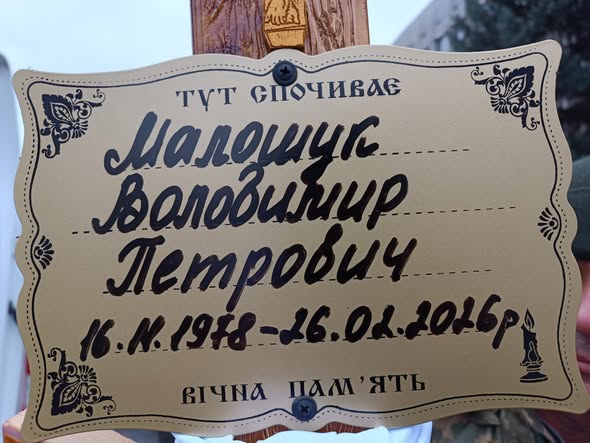 ТУТ СПОЧИВАЄ
Малощук
Володимир
Петрович
16.IV.1978-26.02.2026р
ВІЧНА ПАМ'ЯТЬ